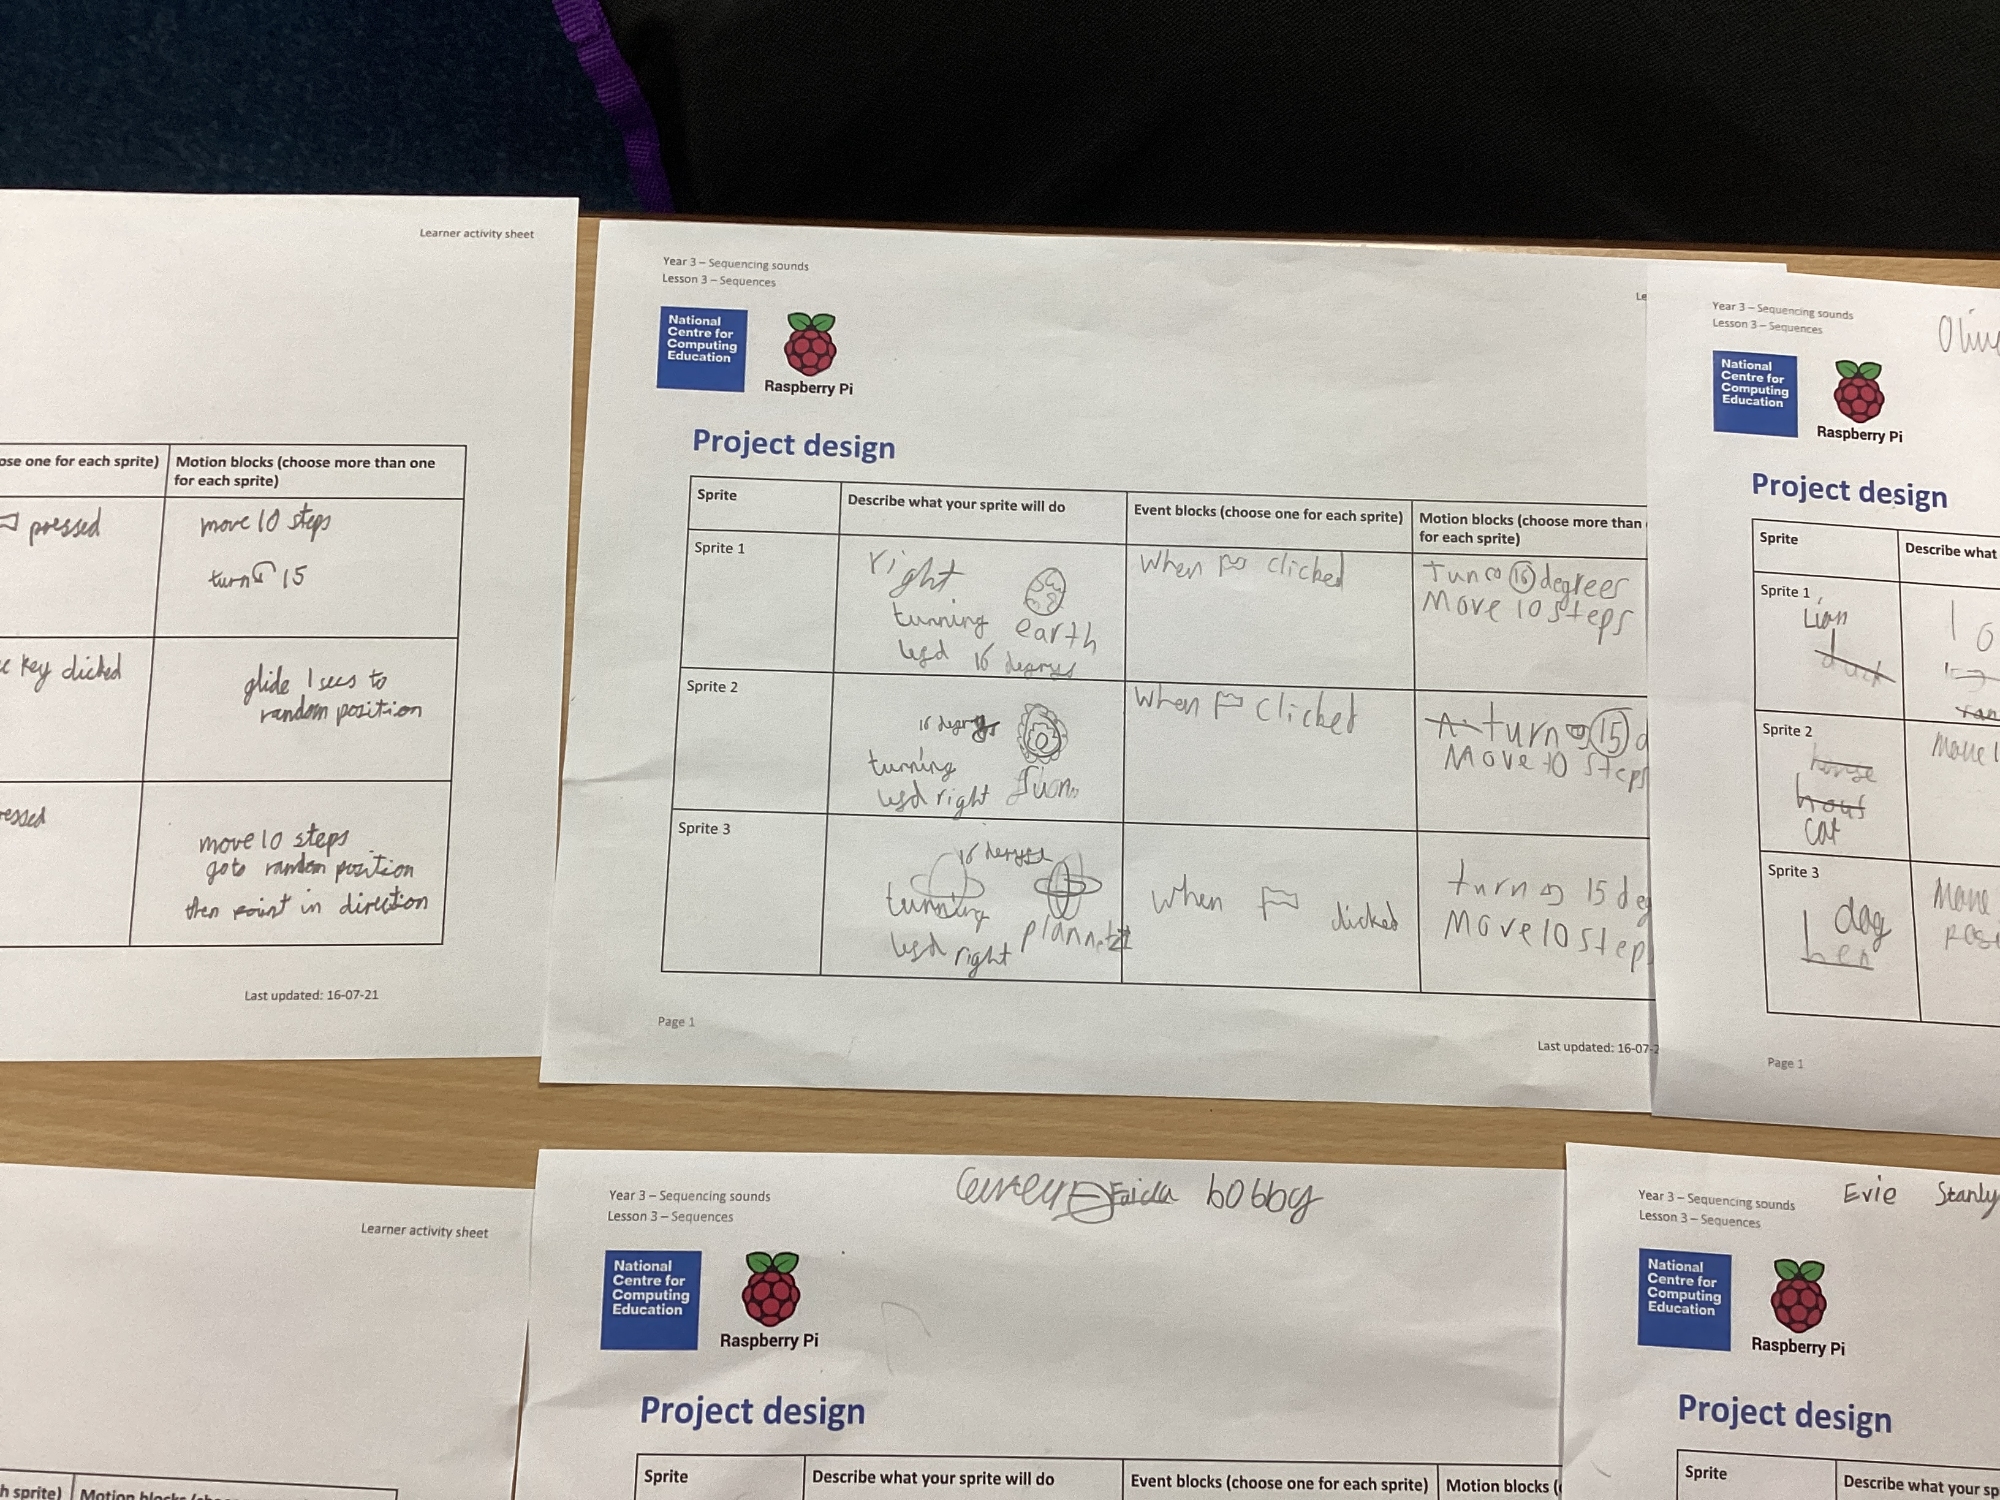 Learner activity sheet
ose one for each sprite)
Motion blocks (choose more than one
for each sprite)
pressed
move 10 steps
turn 15
key clicked
glide 1 secs to
random position
essed
move 10 steps
go to random position
then point in direction
Last updated: 16-07-21
Year 3 – Sequencing sounds
Lesson 3 – Sequences
Le
National
Centre for
Computing
Education
Raspberry Pi
Project design
Sprite
Describe what your sprite will do
Event blocks (choose one for each sprite)
Motion blocks (choose more than
for each sprite)
Sprite 1
right
tunning earth
16
When clicked
Tun 16 degrees
Move 10 steps
Sprite 2
16
turning
right
When clicked
turn 15 d
Move 10 steps
Sprite 3
16
turning
right
When clicked
turn 15 deg
Move 10 step
Page 1
Last updated: 16-07-2
Year 3 – Sequencing sounds
Lesson 3 – Sequences
National
Centre for
Computing
Education
Raspberry Pi
Project design
Sprite
Describe what
Sprite 1
Lion
duck
Sprite 2
horse
hous
cat
Sprite 3
dog
hen
Page 1
Learner activity sheet
h sprite)
Year 3 – Sequencing sounds
Lesson 3 – Sequences
bobby
National
Centre for
Computing
Education
Raspberry Pi
Project design
Sprite
Describe what your sprite will do
Event blocks (choose one for each sprite)
Motion blocks (
Year 3 – Sequencing sounds
Lesson 3 – Sequences
Evie Stanly
National
Centre for
Computing
Education
Raspberry Pi
Project design
Sprite
Describe what your sp